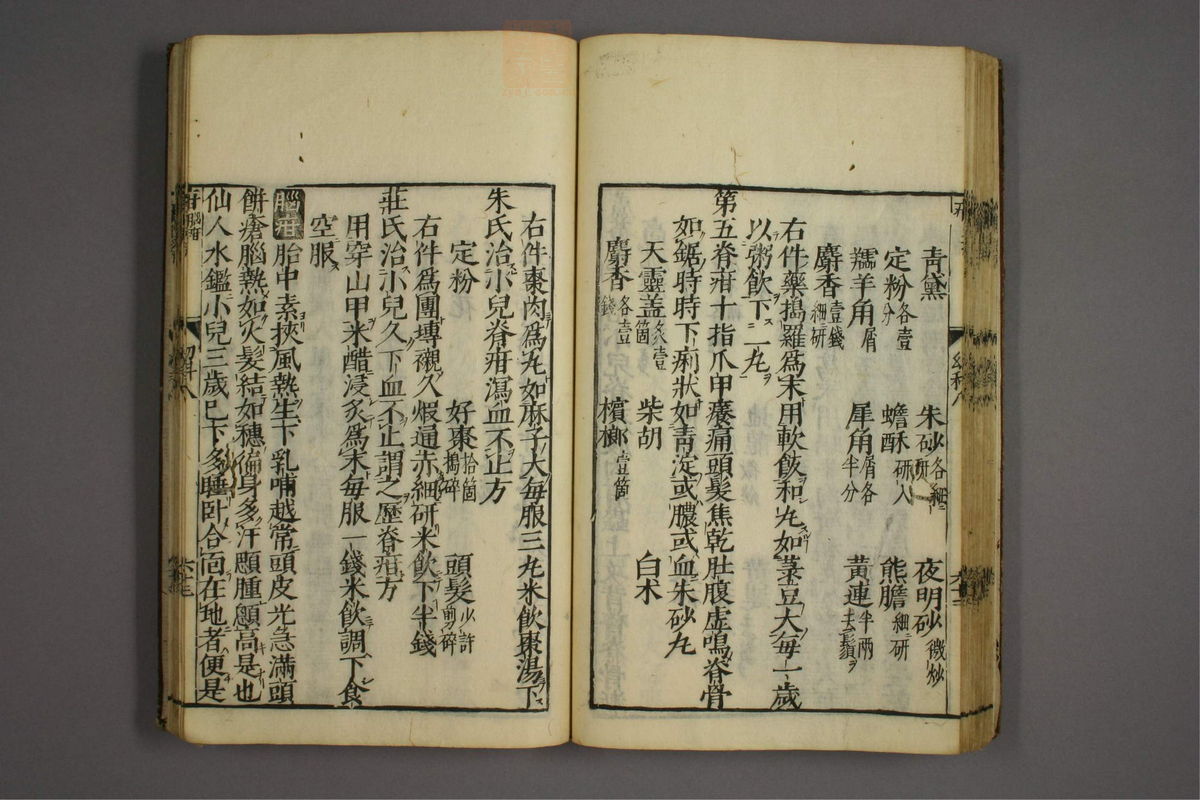 青黛　朱砂各細研　夜明砂微炒
定粉各壹分　蟾酥研入　熊膽細研
羚羊角屑　犀角屑各半分　黃連半兩去鬚
麝香壹錢細研
右件藥搗羅爲末用軟飯和丸如菉豆大每一歲
以粥飲下二丸
第五脊疳十指爪甲癢痛頭髮焦乾肚腹虛鳴脊骨
如鋸時時下痢狀如青淀或膿或血朱砂丸
天靈盖炙壹箇　柴胡　白朮
麝香各壹錢　檳榔壹箇
右件棗肉爲丸如麻子大每服三丸米飲棗湯下
朱氏治小兒脊疳瀉血不止方
定粉　好棗拾箇搗碎　頭髮少許剪碎
右件爲團塼襯火煆通赤細研米飲下半錢
莊氏治小兒久下血不止謂之歷脊疳方
用穿山甲米醋浸炙爲末每服一錢米飲調下食
空服
腦疳胎中素挾風熱生下乳哺越常頭皮光急滿頭
餅瘡腦熱如火髮結如穗偏身多汗顋腫顖高是也
仙人水鑑小兒三歲已下多睡卧合面在地者便是
幼科八